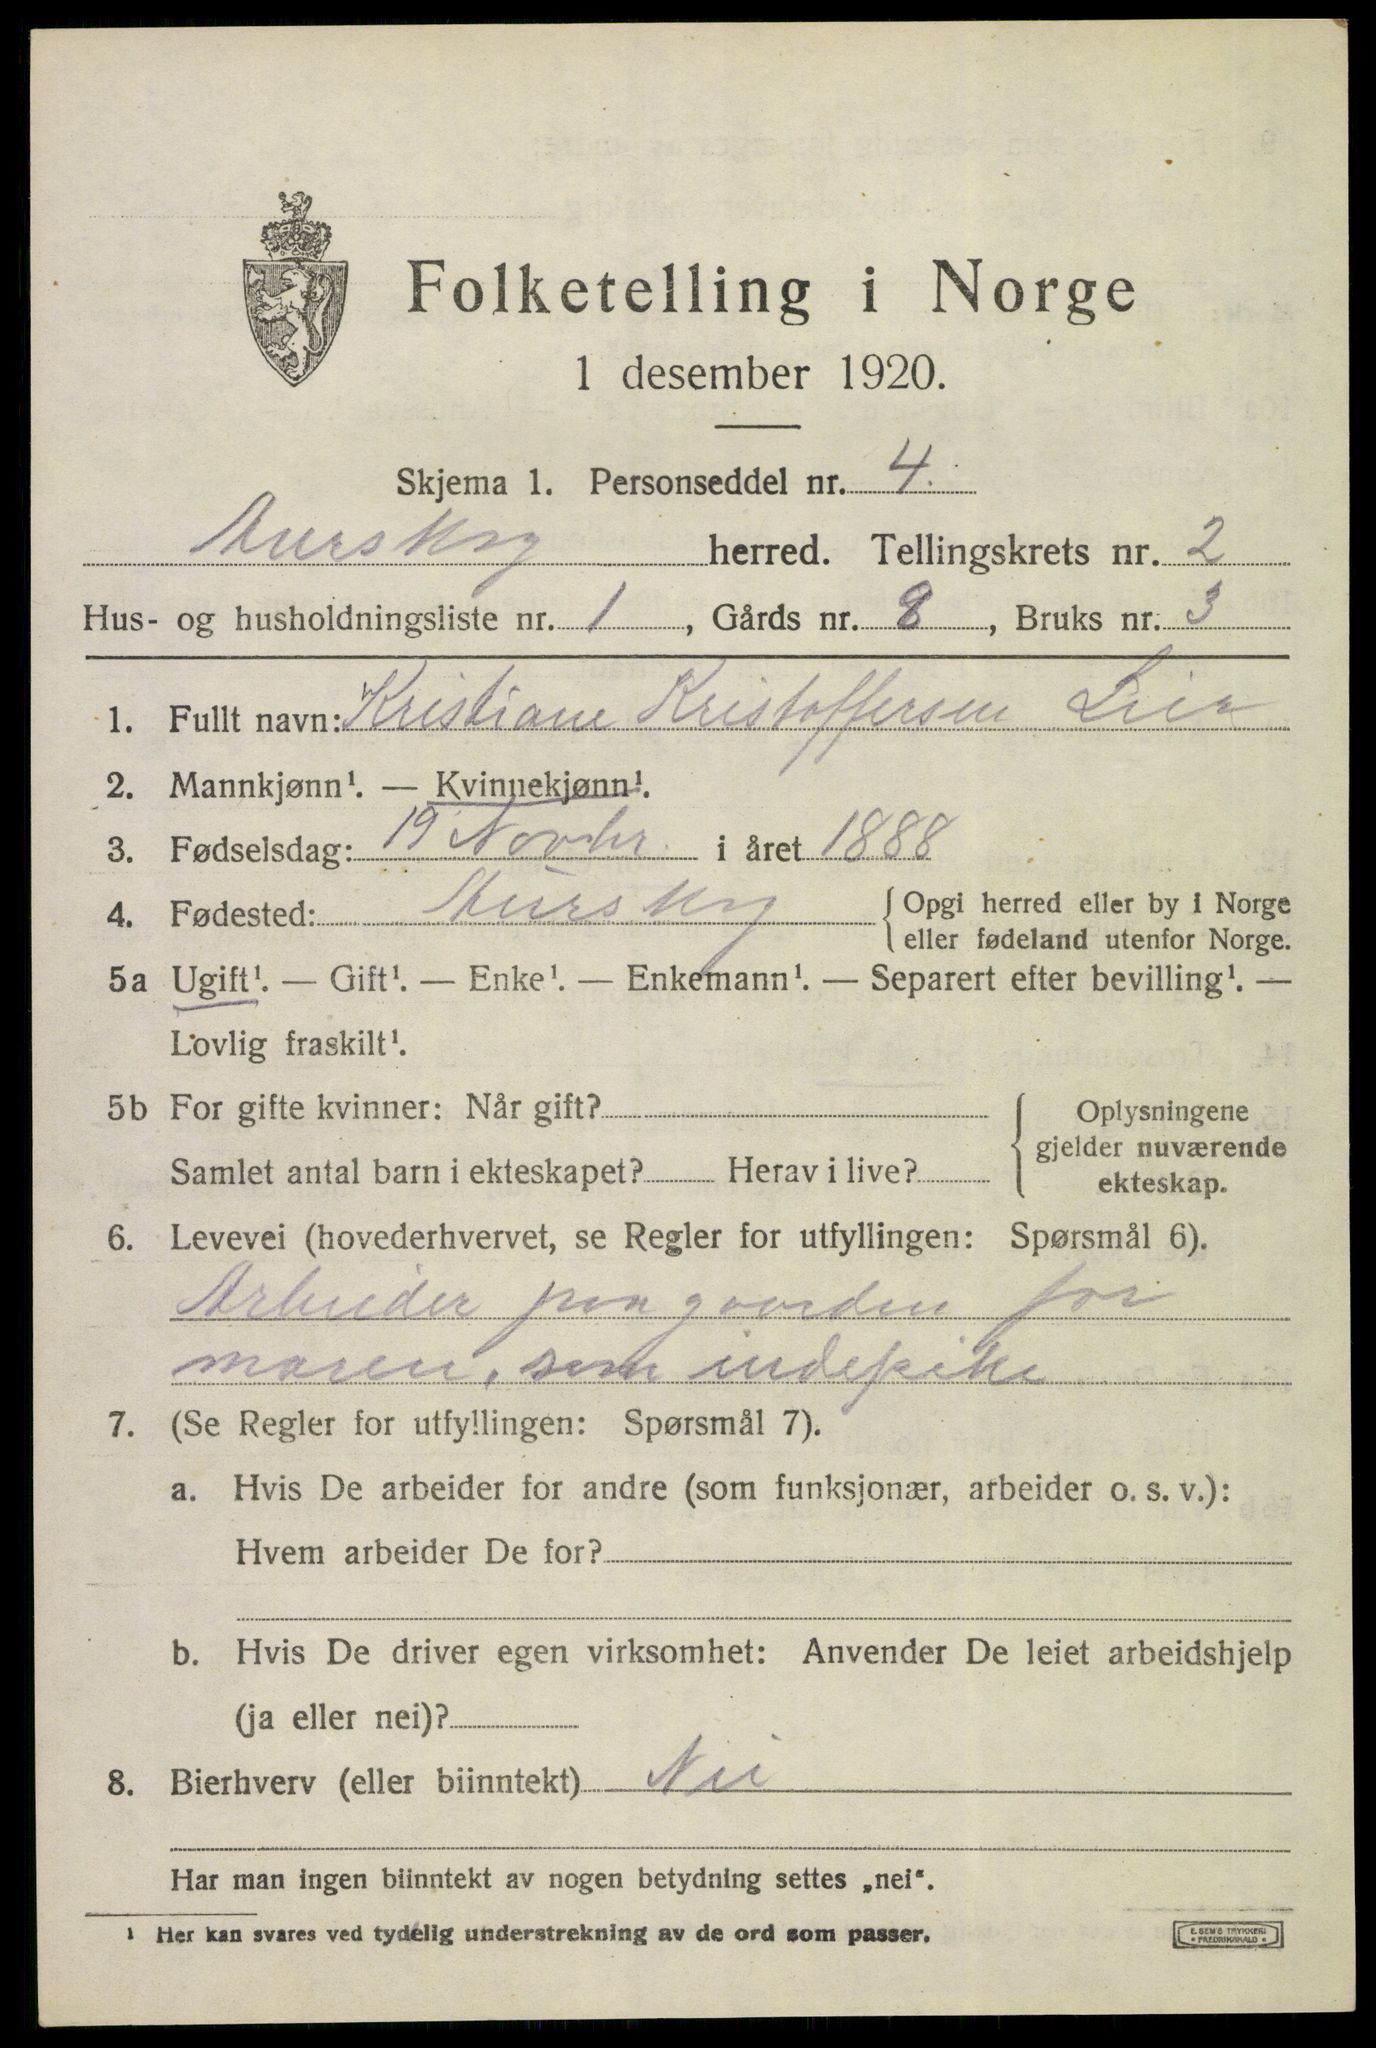 Folketelling i Norge
1 desember 1920.
Skjema 1. Personseddel nr. 4.
Aurskog herred. Tellingskrets nr. 2
Hus- og husholdningsliste nr. 1, Gårds nr. 8, Bruks nr. 3
1. Fullt navn: Kristiane Kristoffersen Lier
2. Mannkjønn¹. — Kvinnekjønn¹.
3. Fødselsdag: 19 Novbr. i året 1888
4. Fødested: Aurskog { Opgi herred eller by i Norge
eller fødeland utenfor Norge.
5a Ugift¹. — Gift¹. — Enke¹. — Enkemann¹. — Separert efter bevilling¹. —
Lovlig fraskilt¹.
5b For gifte kvinner: Når gift?
Samlet antal barn i ekteskapet? Herav i live?
{ Oplysningene
gjelder nuværende
ekteskap.
6. Levevei (hovederhvervet, se Regler for utfyllingen: Spørsmål 6).
Arbeider paa gaarden for
moren, som indepike
7. (Se Regler for utfyllingen: Spørsmål 7).
a. Hvis De arbeider for andre (som funksjonær, arbeider o. s. v.):
Hvem arbeider De for?
b. Hvis De driver egen virksomhet: Anvender De leiet arbeidshjelp
(ja eller nei)?
8. Bierhverv (eller biinntekt) Nei
Har man ingen biinntekt av nogen betydning settes „nei“.
¹ Her kan svares ved tydelig understrekning av de ord som passer.
E. SEMS TRYKKERI
FREDRIKSHALD